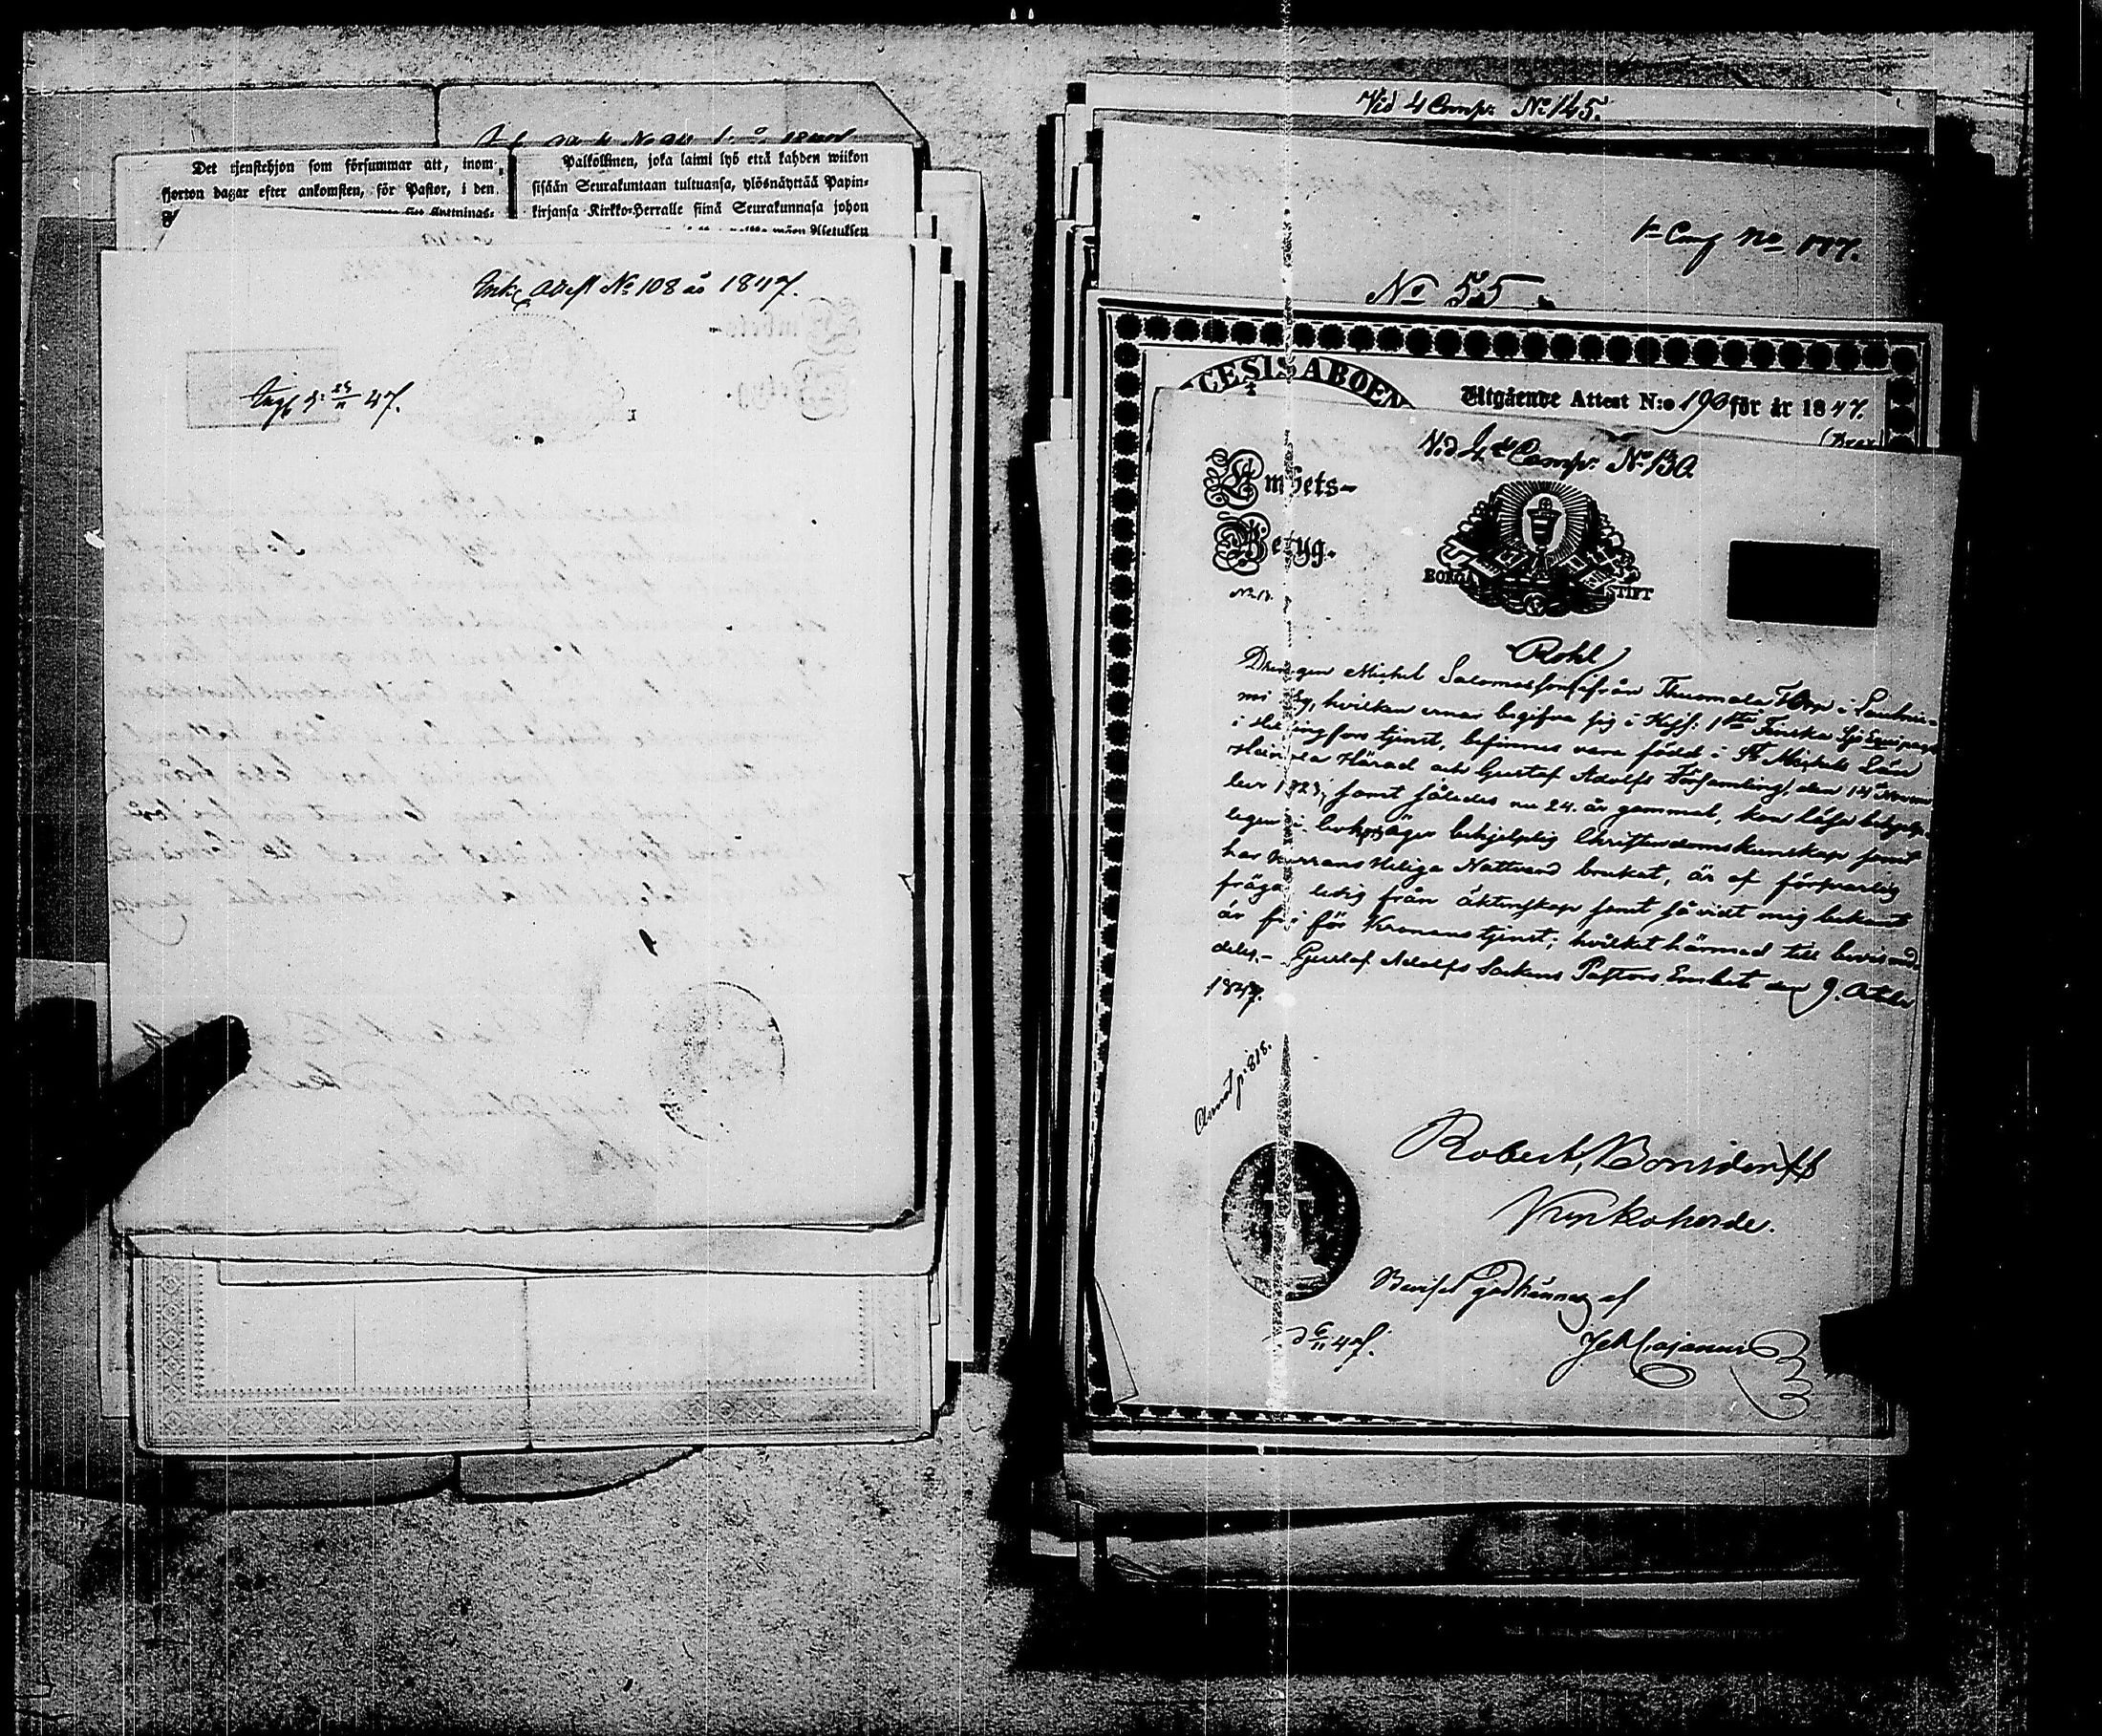 Det tjenstehjon som försummar att, inom
fjorton dagar efter ankomsten, för Pastor, i den
Palkollinen, joka laimi lyö että kahden wiikon
sisään Seurakuntaan tultuansa, ylösnäyttää Papin-
kirjansa Kirkko-Herralle siinä Seurakunnasa johon
Asetuksen
Attest No 108 år 1847.
25/11 47.
Vid 4 Comp. No 145.
1e Comp No 117.
No 55
CESIS ABOEN
Utgående Attest N:o 190 för år 1847.
Vid 4de Comp. No 130.
Embets-
Betyg.
No 18.
BORGÅ STIFT
Rohl
Drengen Michel Salomonsson från Thuomala Torp i
by, hvilken ernar begifva sig i Kejs: 1sta Finska Sjö Equipagets
i Helsingfors tjenst, befinnes vara född i St Michels Län
Heinola Härad och Gustaf Adolfs Församling, den 14 Novem
ber 1823, samt således nu 24. år gammal, kan läsa behjelp-
ligen i bok, äger behjelplig Christendomskunskap samt
har Herrans Heliga Nattvard brukat, är af förswarlig
frägd ledig från äktenskap samt såvidt mig bekant
är fri för Kronans tjenst; hvilket härmed till bevis med-
deles. Gustaf Adolfs Sockens Pastors Embet den 9. October
1847.
Annot. p. 818.
Robert Bonsdorff
Kyrkoherde.
Beviset godkännes af
d 6/11 47.